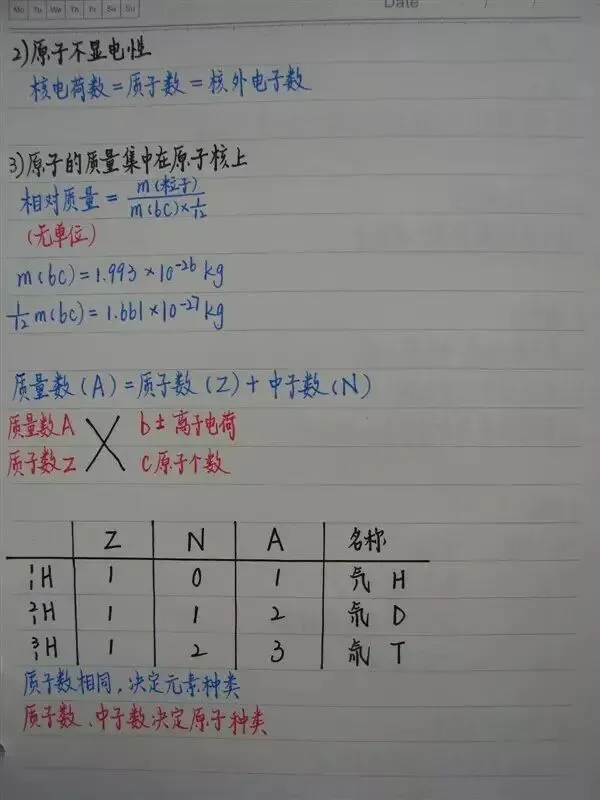 Mo Tu We Th Fr Sa Su
Date / /
2)原子不显电性
核电荷数=质子数=核外电子数
3)原子的质量集中在原子核上
相对质量=m(粒子)/m(6C)×1/12
(无单位)
m(6C)=1.993×10⁻²⁶kg
1/12m(6C)=1.661×10⁻²⁷kg
质量数(A)=质子数(Z)+中子数(N)
质量数A b± 离子电荷
质子数Z c原子个数
Z N A 名称
¹₁H 1 0 1 氕 H
²₁H 1 1 2 氘 D
³₁H 1 2 3 氚 T
质子数相同,决定元素种类
质子数、中子数决定原子种类